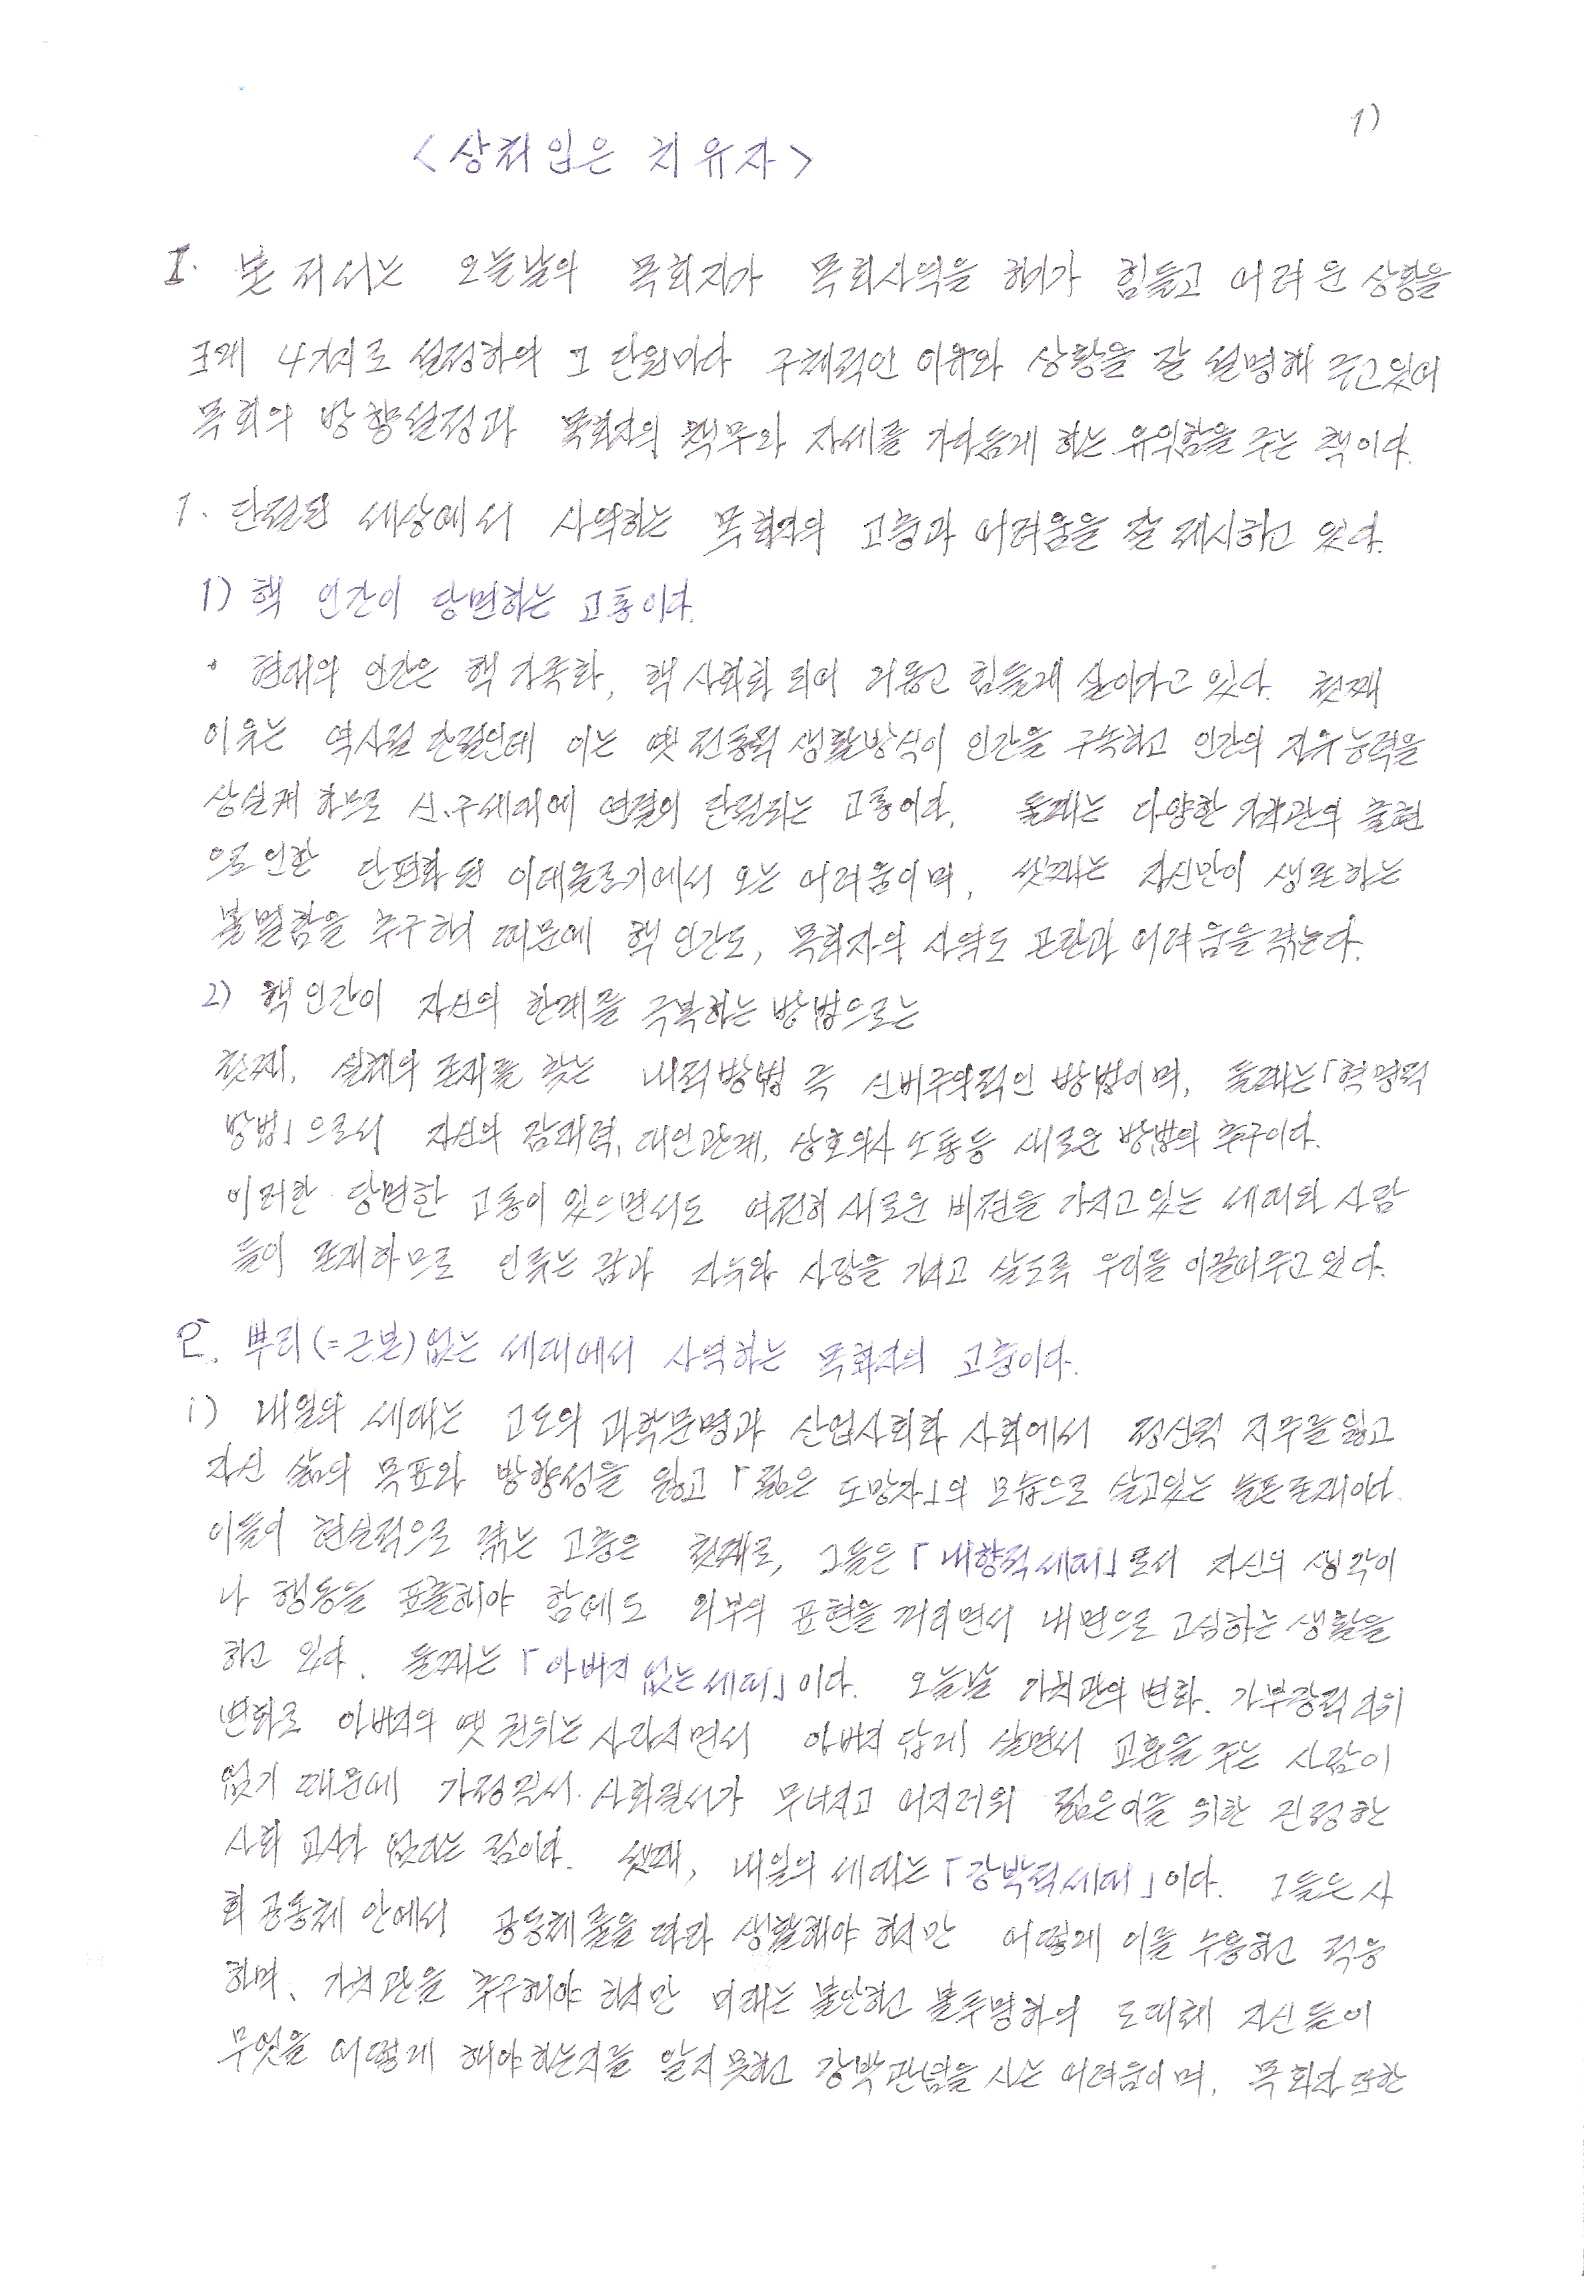 1)
<상처입은 치유자>
I. 본 저서는 오늘날의 목회자가 목회사역을 하기가 힘들고 어려운 상황을
크게 4가지로 설정하여 그 단원마다 구체적인 이유와 상황을 잘 설명해 주고있어
목회의 방향설정과 목회자의 책무와 자세를 가다듬게 하는 유익함을 주는 책이다.
1. 단절된 세상에서 사역하는 목회자의 고충과 어려움을 잘 제시하고 있다.
1) 핵 인간이 당면하는 고통이다.
• 현대의 인간은 핵 가족화, 핵 사회화 되어 외롭고 힘들게 살아가고 있다. 첫째
이유는 역사적 단절인데 이는 옛 전통적 생활방식이 인간을 구속하고 인간의 자유능력을
상실케 하므로 신.구세대에 연결이 단절되는 고통이다. 둘째는 다양한 가치관의 출현
으로 인한 단편화 된 이데올로기에서 오는 어려움이며, 셋째는 자신만이 생존하는
불멸함을 추구하기 때문에 핵 인간도, 목회자의 사역도 곤란과 어려움을 겪는다.
2) 핵 인간이 자신의 한계를 극복하는 방법으로는
첫째, 실제의 존재를 찾는 내적방법 즉 신비주의적인 방법이며, 둘째는「혁명적
방법」으로서 자신의 잠재력, 대인관계, 상호의사 소통등 새로운 방법의 추구이다.
이러한 당면한 고통이 있으면서도 여전히 새로운 비전을 가지고 있는 세대와 사람
들이 존재하므로 인류는 꿈과 자유와 사랑을 가지고 살도록 우리를 이끌어주고 있다.
2. 뿌리(=근본)없는 세대에서 사역하는 목회자의 고충이다.
1) 내일의 세대는 고도의 과학문명과 산업사회화 사회에서 정신적 지주를 잃고
자신 삶의 목표와 방향성을 잃고 「젊은 도망자」의 모습으로 살고있는 존재이다.
이들이 현실적으로 겪는 고충은 첫째로, 그들은 「내향적세대」로서 자신의 생각이
나 행동을 표출해야 함에도 외부의 표현을 꺼리면서 내면으로 고심하는 생활을
하고 있다. 둘째는 「아버지 없는 세대」이다. 오늘날 가치관의 변화. 가부장적 지위
변화로 아버지의 옛 권위는 사라지면서 아버지 답게 살면서 교훈을 주는 사람이
없기 때문에 가정질서. 사회질서가 무너지고 어지러워 젊은이를 위한 진정한
사회 교사가 없다는 점이다. 셋째, 내일의 세대는 「강박적세대」이다. 그들은 사
회 공동체 안에서 공동체 룰을 따라 생활해야 하지만 어떻게 이를 수용하고 적응
하며, 가치관을 추구해야 하지만 미래는 불안하고 불투명하여 도대체 자신들이
무엇을 어떻게 해야하는지를 알지 못하고 강박관념을 어려움이며, 목회자 또한